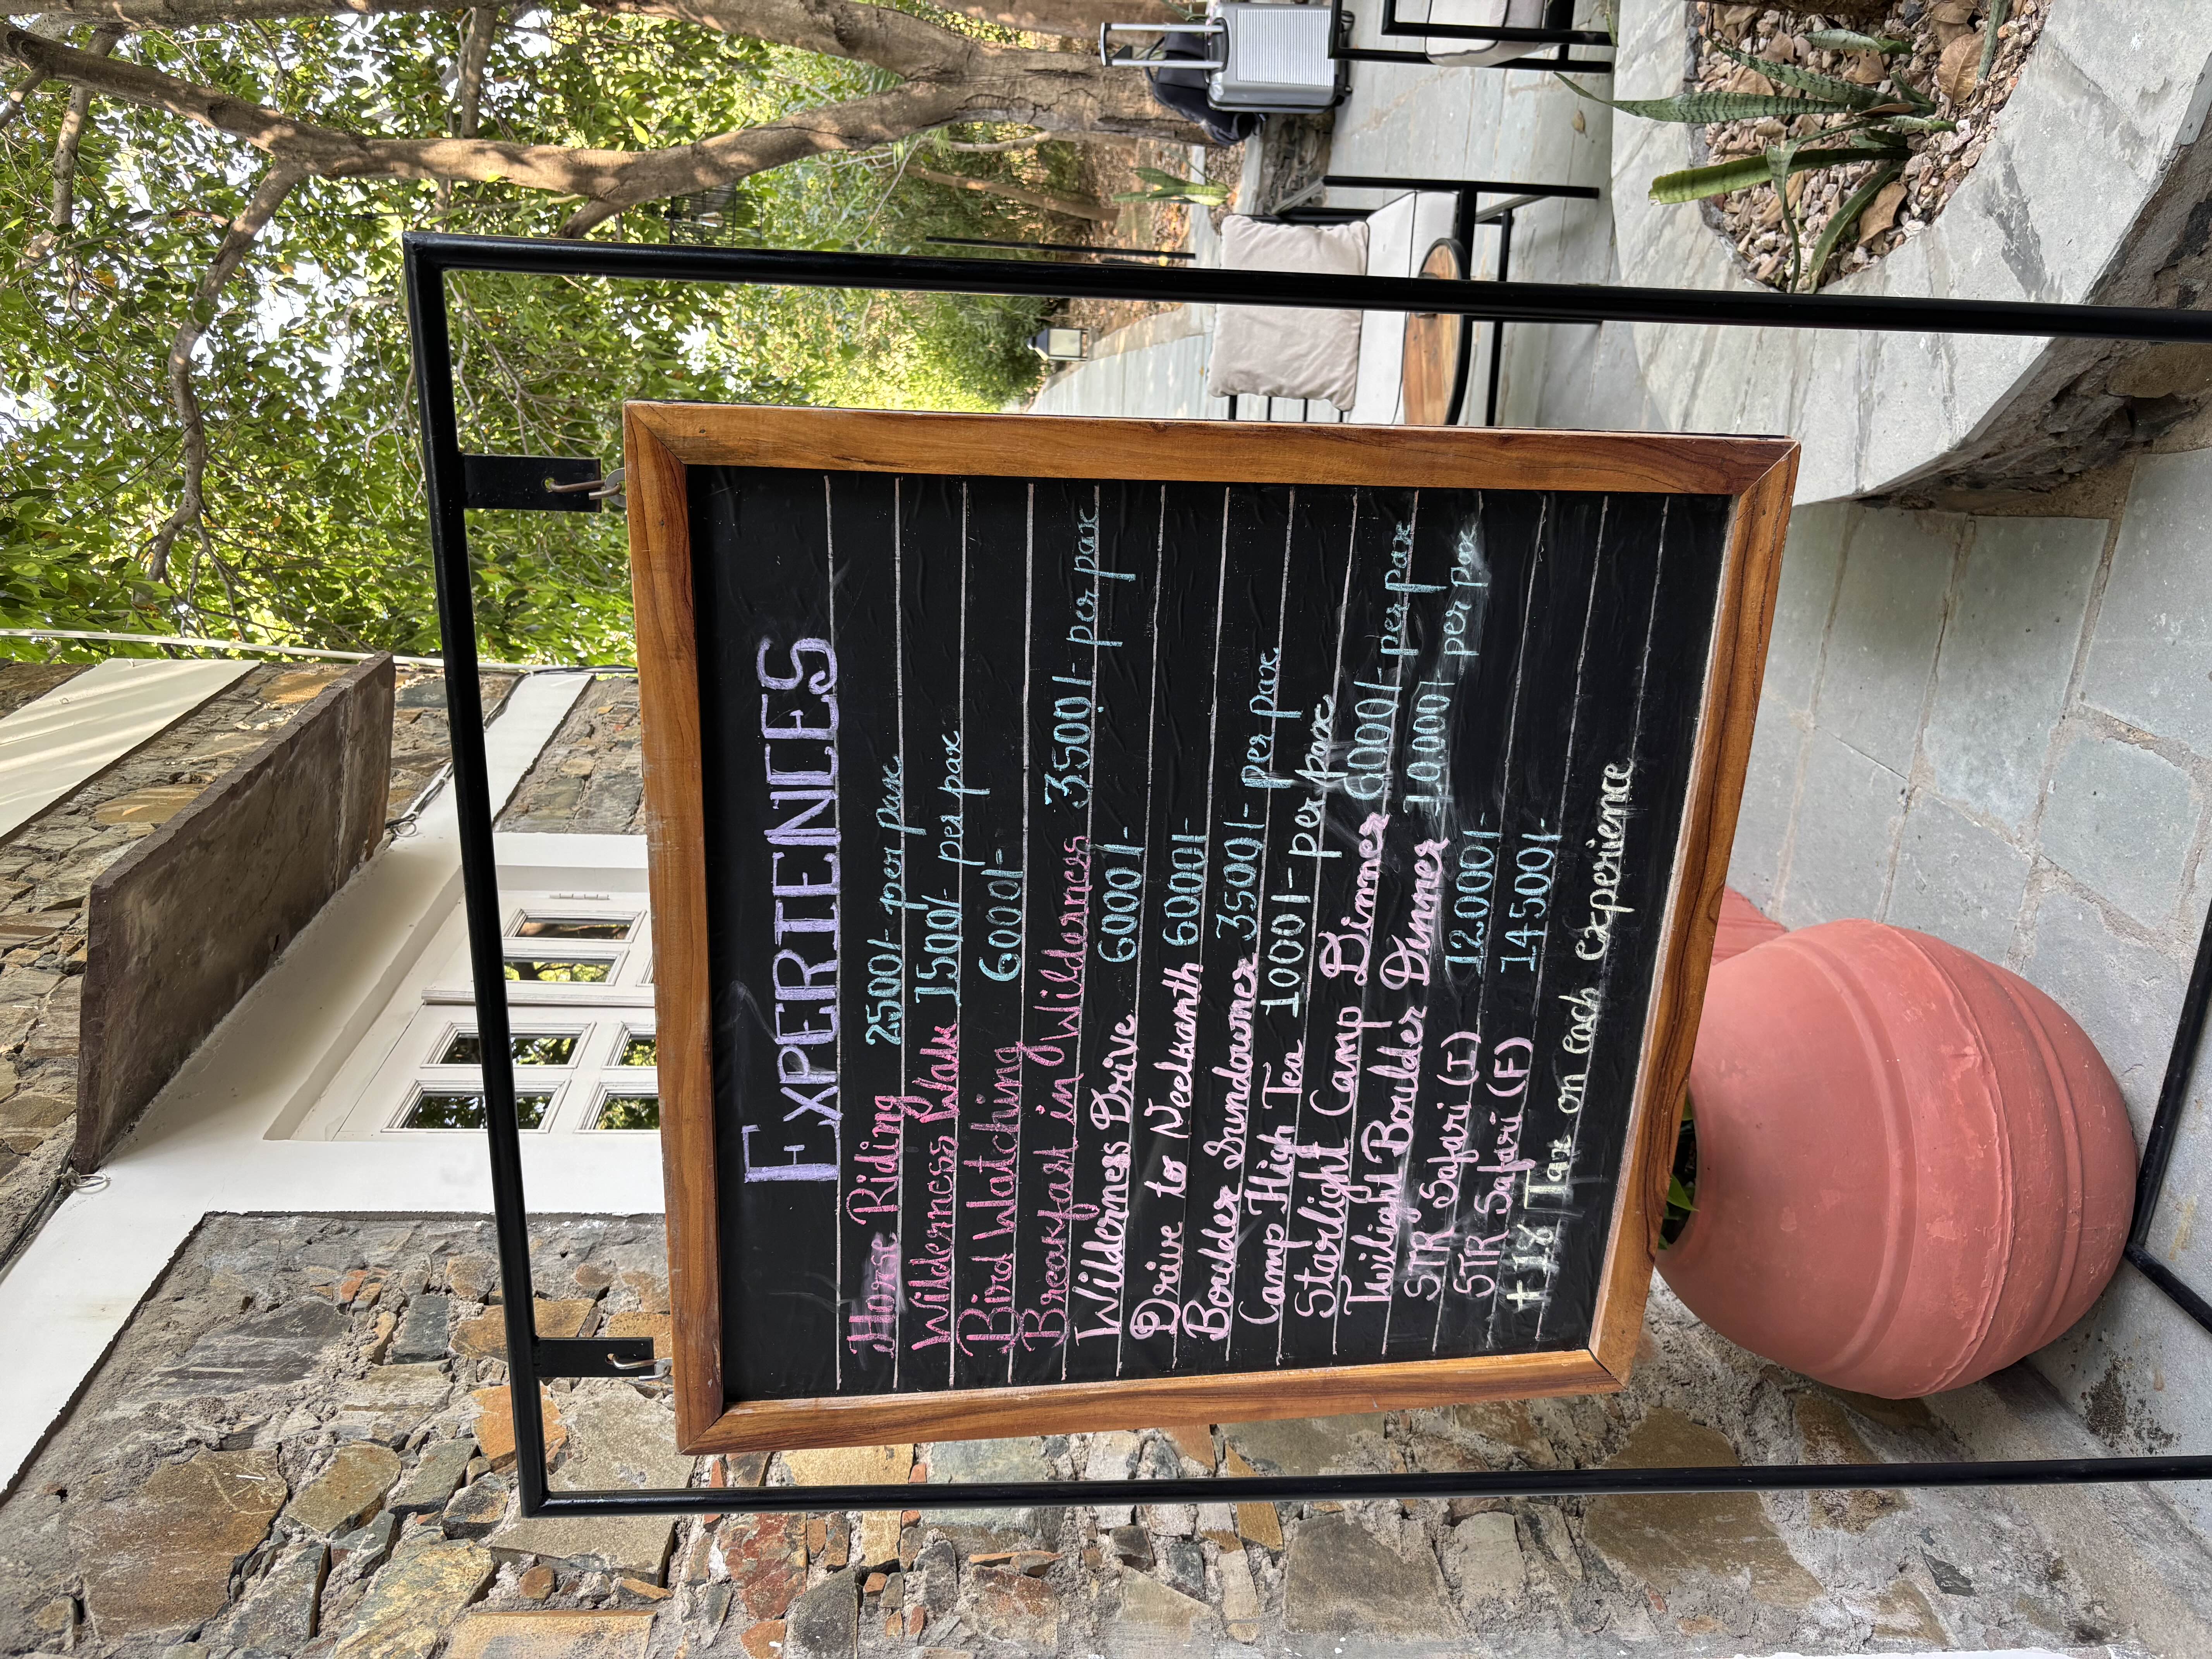 EXPERIENCES
Horse Riding 2500/- per pax
Wilderness Walk 1500/- per pax
Bird Watching 6000/-
Breakfast in Wilderness 3500/- per pax
Wilderness Drive 6000/-
Drive to Neelkanth 6000/-
Boulder Sundowner 3500/- per pax
Camp High Tea 1000/- per pax
Starlight Camp Dinner 6000/- per pax
Twilight Boulder Dinner 10,000/- per pax
STR Safari (I) 12,000/-
STR Safari (F) 14500/-
+ 18 Tax on each experience